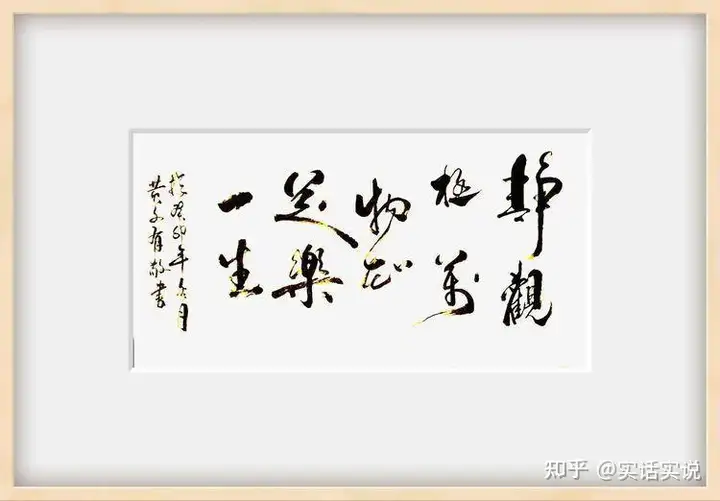 靜觀
極萬
物志
足樂
一生
於癸卯年月
子有敬書
知乎 @实话实说